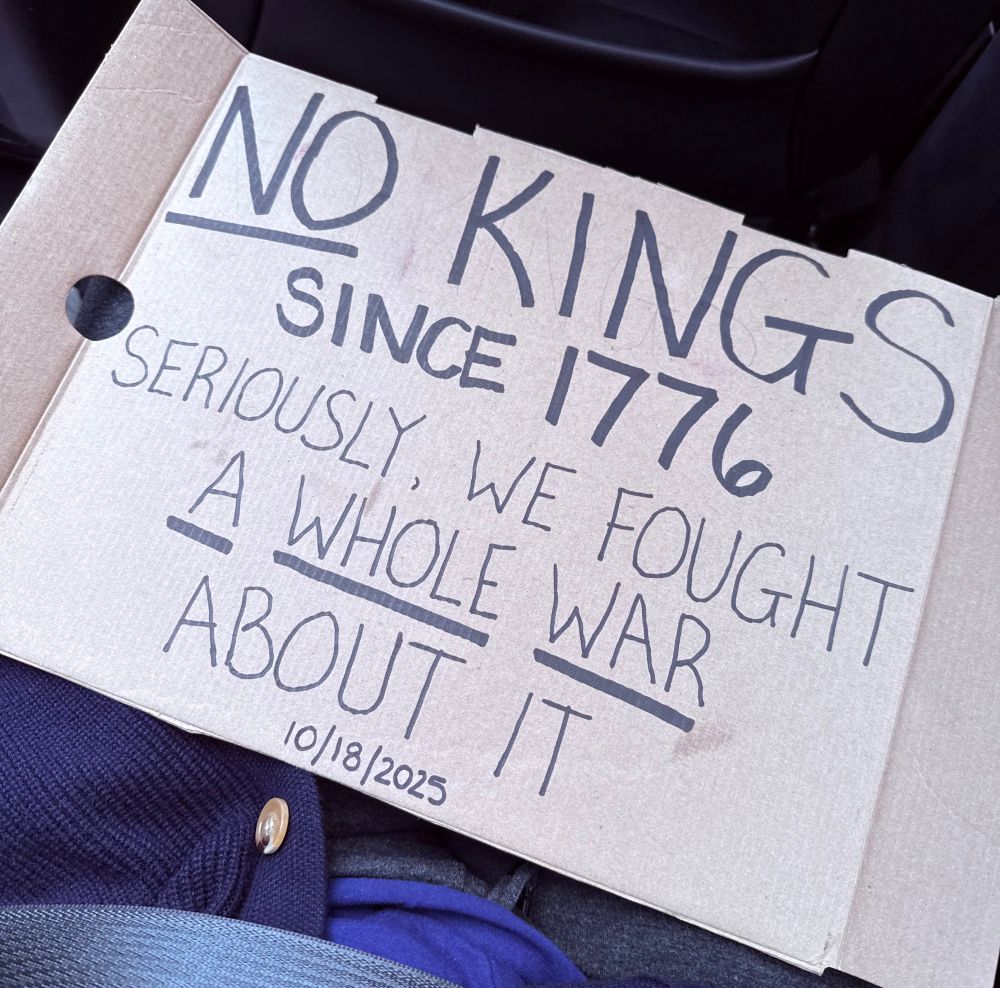 NO KINGS
SINCE 1776
SERIOUSLY, WE FOUGHT
A WHOLE WAR
ABOUT IT
10/18/2025